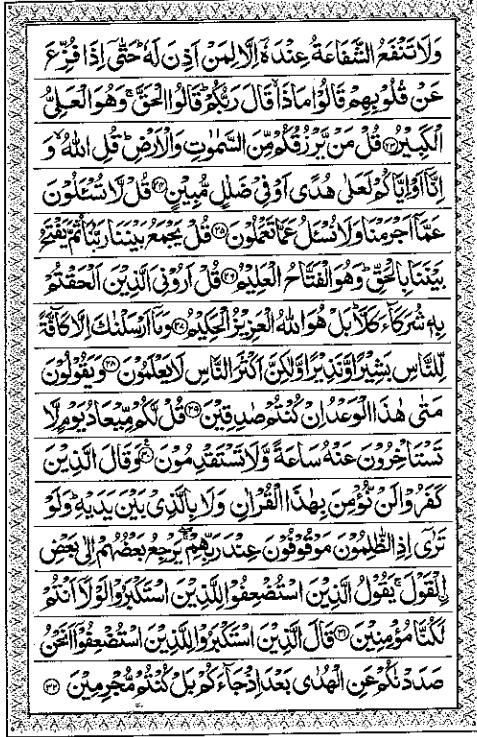 وَلَا تَنْفَعُ الشَّفَاعَةُ عِنْدَهٗۤ اِلَّا لِمَنْ اَذِنَ لَهٗ ؕ حَتّٰۤى اِذَا فُزِّعَ
عَنْ قُلُوْبِهِمْ قَالُوْا مَاذَا ۙ قَالَ رَبُّكُمْ ؕ قَالُوا الْحَقَّ ۚ وَهُوَ الْعَلِیُّ
الْكَبِیْرُ ﴿۲۳﴾ قُلْ مَنْ یَّرْزُقُكُمْ مِّنَ السَّمٰوٰتِ وَالْاَرْضِ ؕ قُلِ اللّٰهُ ۙ وَ
اِنَّاۤ اَوْ اِیَّاكُمْ لَعَلٰی هُدًی اَوْ فِیْ ضَلٰلٍ مُّبِیْنٍ ﴿۲۴﴾ قُلْ لَّا تُسْـَٔلُوْنَ
عَمَّاۤ اَجْرَمْنَا وَلَا نُسْـَٔلُ عَمَّا تَعْمَلُوْنَ ﴿۲۵﴾ قُلْ یَجْمَعُ بَیْنَنَا رَبُّنَا ثُمَّ یَفْتَحُ
بَیْنَنَا بِالْحَقِّ ؕ وَهُوَ الْفَتَّاحُ الْعَلِیْمُ ﴿۲۶﴾ قُلْ اَرُوْنِیَ الَّذِیْنَ اَلْحَقْتُمْ
بِهٖ شُرَكَآءَ كَلَّا ؕ بَلْ هُوَ اللّٰهُ الْعَزِیْزُ الْحَكِیْمُ ﴿۲۷﴾ وَمَاۤ اَرْسَلْنٰكَ اِلَّا كَآفَّةً
لِّلنَّاسِ بَشِیْرًا وَّنَذِیْرًا وَّلٰكِنَّ اَكْثَرَ النَّاسِ لَا یَعْلَمُوْنَ ﴿۲۸﴾ وَیَقُوْلُوْنَ
مَتٰی هٰذَا الْوَعْدُ اِنْ كُنْتُمْ صٰدِقِیْنَ ﴿۲۹﴾ قُلْ لَّكُمْ مِّیْعَادُ یَوْمٍ لَّا
تَسْتَاْخِرُوْنَ عَنْهُ سَاعَةً وَّلَا تَسْتَقْدِمُوْنَ ﴿۳۰﴾ وَقَالَ الَّذِیْنَ
كَفَرُوْا لَنْ نُّؤْمِنَ بِهٰذَا الْقُرْاٰنِ وَلَا بِالَّذِیْ بَیْنَ یَدَیْهِ ؕ وَلَوْ
تَرٰۤی اِذِ الظّٰلِمُوْنَ مَوْقُوْفُوْنَ عِنْدَ رَبِّهِمْ ۖۚ یَرْجِعُ بَعْضُهُمْ اِلٰی بَعْضِ
ِۣالْقَوْلَ ۚ یَقُوْلُ الَّذِیْنَ اسْتُضْعِفُوْا لِلَّذِیْنَ اسْتَكْبَرُوْا لَوْلَاۤ اَنْتُمْ
لَكُنَّا مُؤْمِنِیْنَ ﴿۳۱﴾ قَالَ الَّذِیْنَ اسْتَكْبَرُوْا لِلَّذِیْنَ اسْتُضْعِفُوْۤا اَنَحْنُ
صَدَدْنٰكُمْ عَنِ الْهُدٰی بَعْدَ اِذْ جَآءَكُمْ بَلْ كُنْتُمْ مُّجْرِمِیْنَ ﴿۳۲﴾